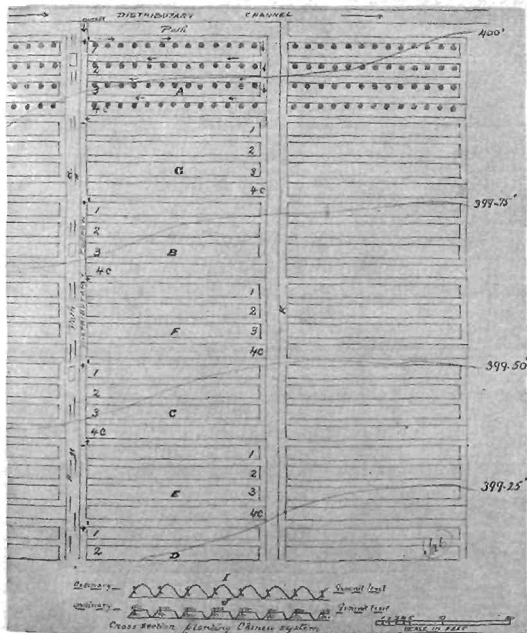 DISTRIBUTARY CHANNEL
Path
400'
1
2
3
A
4C
1
2
G
3
4C
399.75'
1
2
3
B
4C
1
2
F
3
K
4C
399.50'
1
2
3
C
4C
1
2
E
3
399.25'
4C
1
2
D
I
Ordinary
Ground level
Ordinary
Ground level
Cross section planting Chinese system
SCALE IN FEET